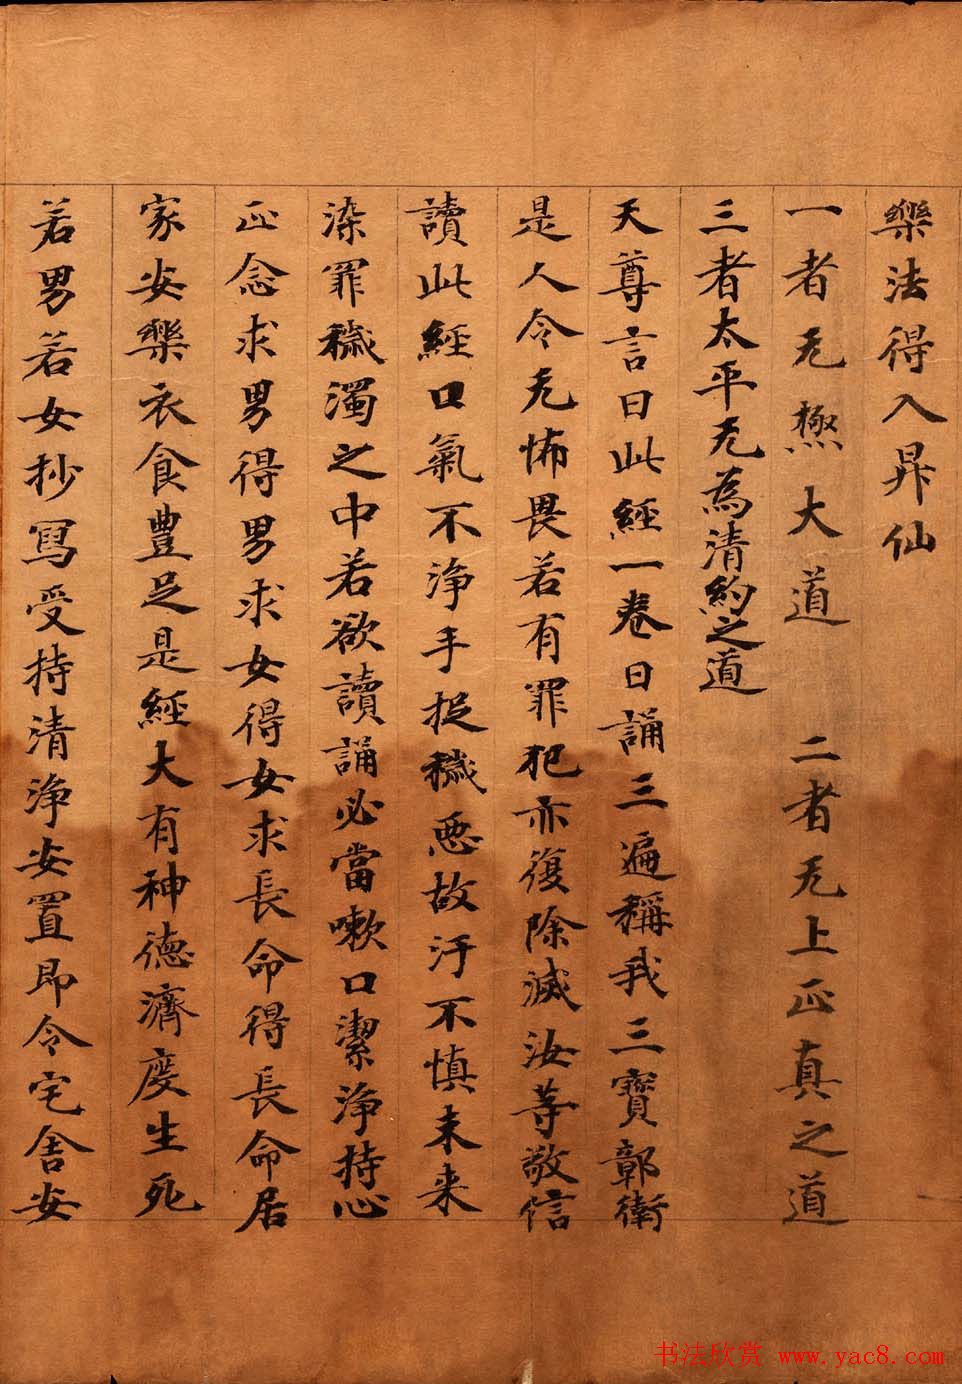 樂法得入昇仙
一者无極大道　二者无上正真之道
三者太平无為清約之道
天尊言曰此經一卷日誦三遍稱我三寶鄣衛
是人令无怖畏若有罪犯亦復除滅汝等敬信
讀此經口氣不淨手捉穢惡故汙不慎未来
染罪穢濁之中若欲讀誦必當嗽口潔淨持心
正念求男得男求女得女求長命得長命居
家安樂衣食豊足是經大有神德濟度生死
若男若女抄寫受持清淨安置即令宅舍安
书法欣赏 www.yac8.com